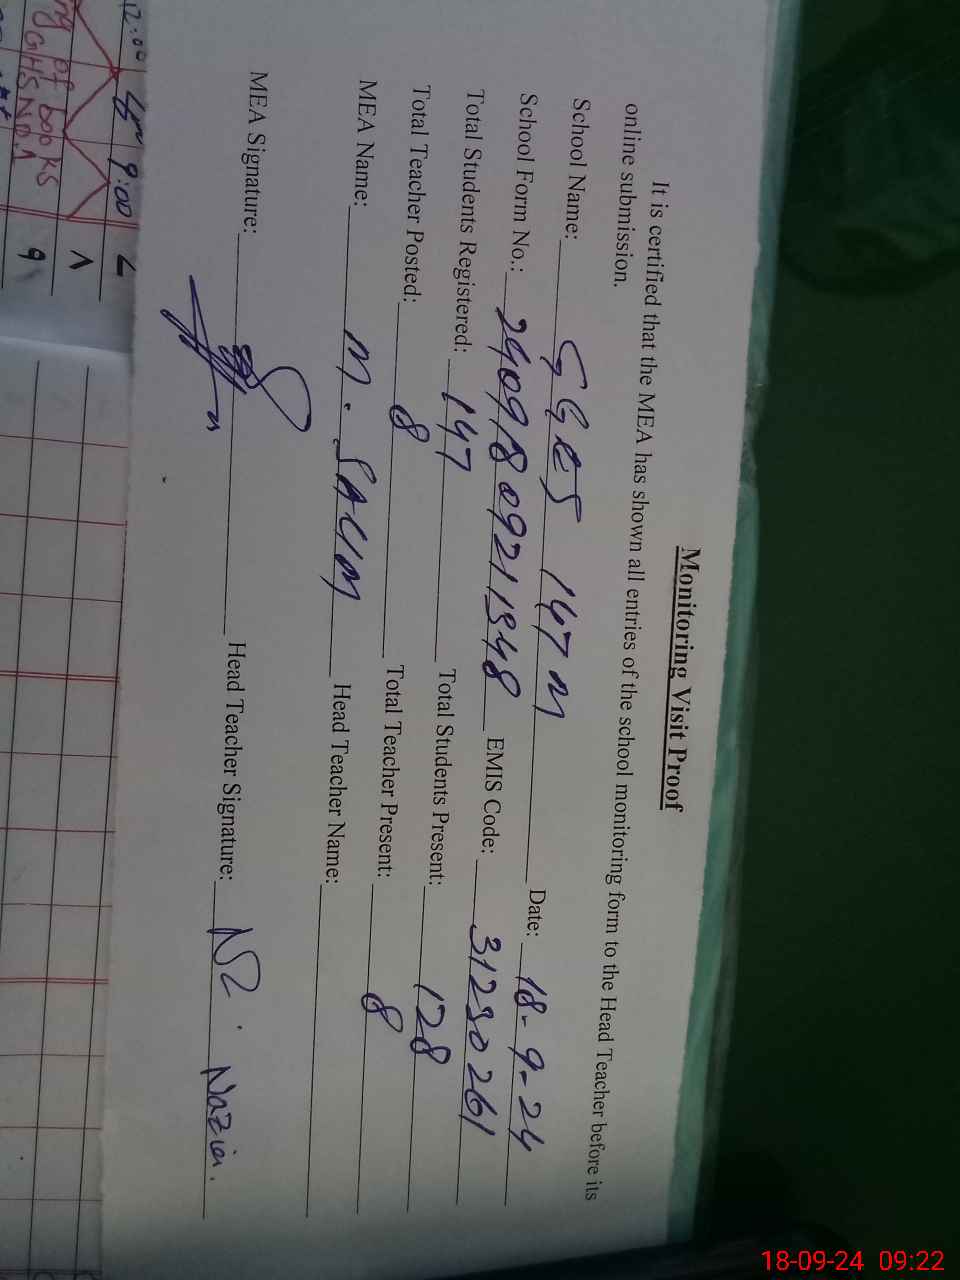 Monitoring Visit Proof
It is certified that the MEA has shown all entries of the school monitoring form to the Head Teacher before its
online submission.
School Name: GGES 147 M Date: 18-9-24
School Form No.: 24091809211348 EMIS Code: 31230261
Total Students Registered: 147 Total Students Present: 128
Total Teacher Posted: 8 Total Teacher Present: 8
MEA Name: M. SALIM Head Teacher Name:
MEA Signature: Head Teacher Signature: Nazir.
12:00 9:00
of books
GHS NO.1
9
18-09-24 09:22